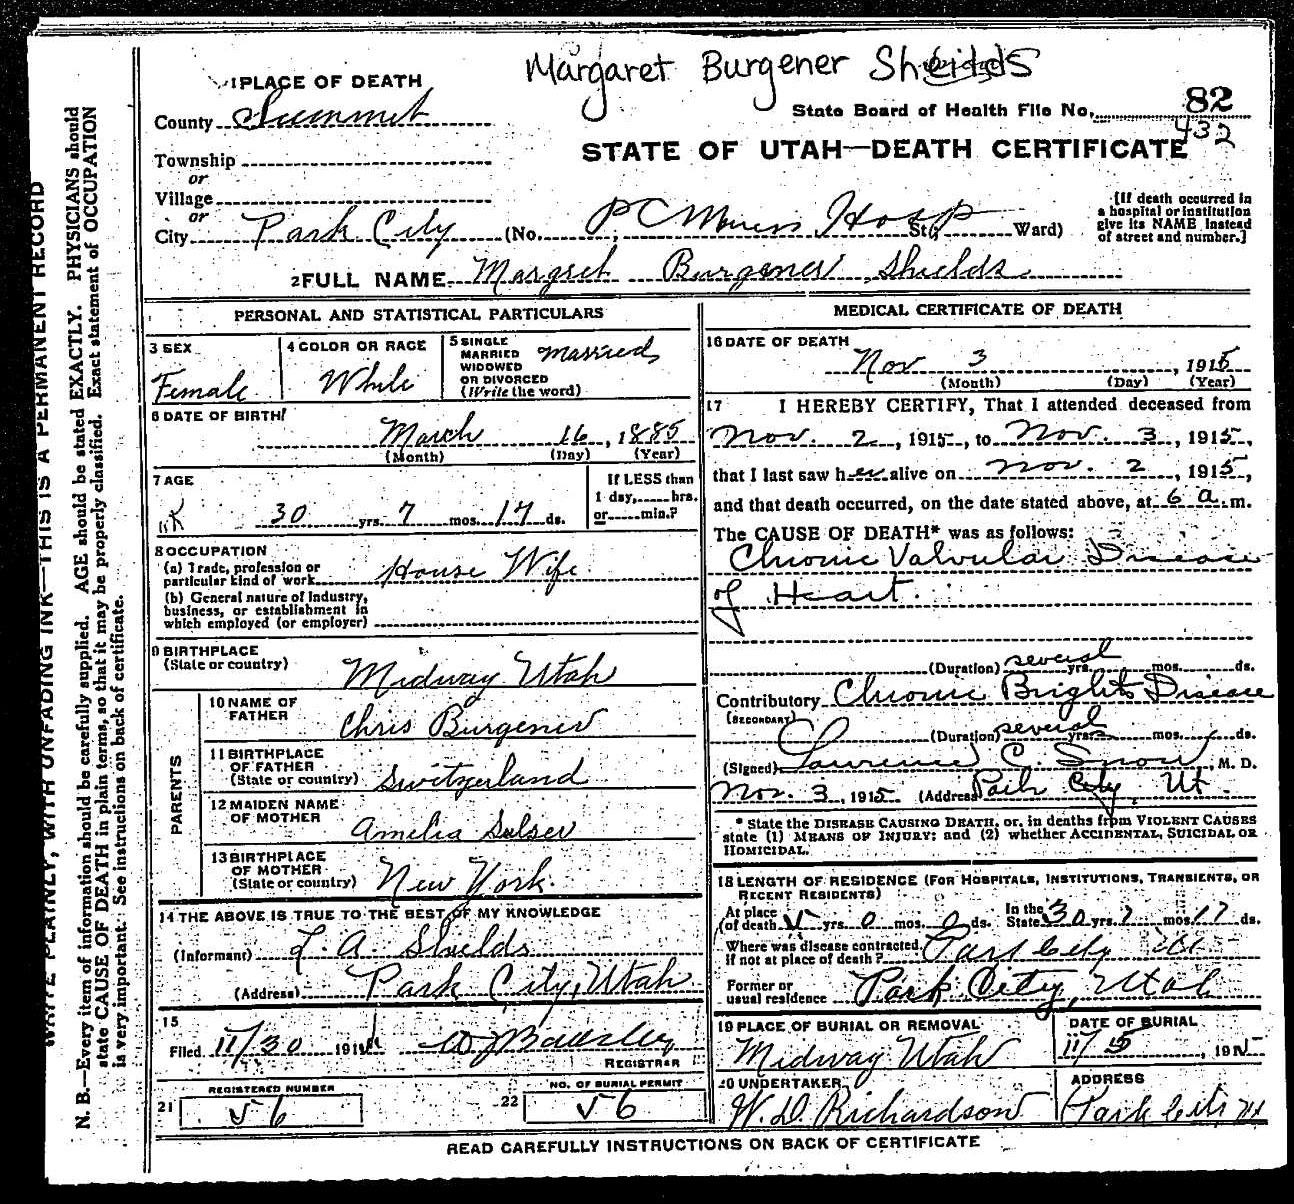 Margaret Burgener Sheilds
1 PLACE OF DEATH
State Board of Health File No. 82
432
County Summit
STATE OF UTAH—DEATH CERTIFICATE
Township
or
Village
or
City Park City (No. P C Miners Hosp St; Ward)
[If death occurred in
a hospital or institution
give its NAME instead
of street and number.]
2 FULL NAME Margret Burgener Shields
WRITE PLAINLY, WITH UNFADING INK—THIS IS A PERMANENT RECORD
N. B.—Every item of information should be carefully supplied. AGE should be stated EXACTLY. PHYSICIANS should
state CAUSE OF DEATH in plain terms, so that it may be properly classified. Exact statement of OCCUPATION
is very important. See instructions on back of certificate.
PERSONAL AND STATISTICAL PARTICULARS
3 SEX
Female
4 COLOR OR RACE
White
5 SINGLE
MARRIED
WIDOWED
OR DIVORCED
(Write the word)
Married
6 DATE OF BIRTH
March 16, 1885
(Month) (Day) (Year)
7 AGE
30 yrs. 7 mos. 17 ds.
If LESS than
1 day, hrs.
or min.?
8 OCCUPATION
(a) Trade, profession or
particular kind of work House Wife
(b) General nature of Industry,
business, or establishment in
which employed (or employer)
9 BIRTHPLACE
(State or country)
Midway Utah
PARENTS
10 NAME OF
FATHER
Chris Burgener
11 BIRTHPLACE
OF FATHER
(State or country) Switzerland
12 MAIDEN NAME
OF MOTHER
Amelia Sulser
13 BIRTHPLACE
OF MOTHER
(State or country) New York
14 THE ABOVE IS TRUE TO THE BEST OF MY KNOWLEDGE
(Informant) A. Shields
(Address) Park City, Utah
15
Filed 11/30 191
REGISTRAR
REGISTERED NUMBER
21 56
NO. OF BURIAL PERMIT
22 56
MEDICAL CERTIFICATE OF DEATH
16 DATE OF DEATH
Nov 3, 1915
(Month) (Day) (Year)
17 I HEREBY CERTIFY, That I attended deceased from
Nov. 2, 1915, to Nov. 3, 1915,
that I last saw her alive on Nov. 2, 1915,
and that death occurred, on the date stated above, at 6 a.m.
The CAUSE OF DEATH* was as follows:
Chronic Valvular Disease
of Heart.
(Duration) several yrs. mos. ds.
Contributory Chronic Brights Disease
(SECONDARY)
(Duration) several yrs. mos. ds.
(Signed) Lawrence C. Snow, M. D.
Nov. 3, 1915 (Address) Park City, Ut.
* State the DISEASE CAUSING DEATH, or, in deaths from VIOLENT CAUSES
state (1) MEANS OF INJURY; and (2) whether ACCIDENTAL, SUICIDAL OR
HOMICIDAL.
18 LENGTH OF RESIDENCE (FOR HOSPITALS, INSTITUTIONS, TRANSIENTS, OR
RECENT RESIDENTS)
At place
of death 5 yrs. 0 mos. 0 ds. In the
State 30 yrs. 7 mos. 17 ds.
Where was disease contracted,
if not at place of death? Park City Ut
Former or
usual residence Park City, Utah
19 PLACE OF BURIAL OR REMOVAL
Midway Utah
DATE OF BURIAL
11/5, 1915
20 UNDERTAKER
W. D. Richardson
ADDRESS
Park City Ut
READ CAREFULLY INSTRUCTIONS ON BACK OF CERTIFICATE